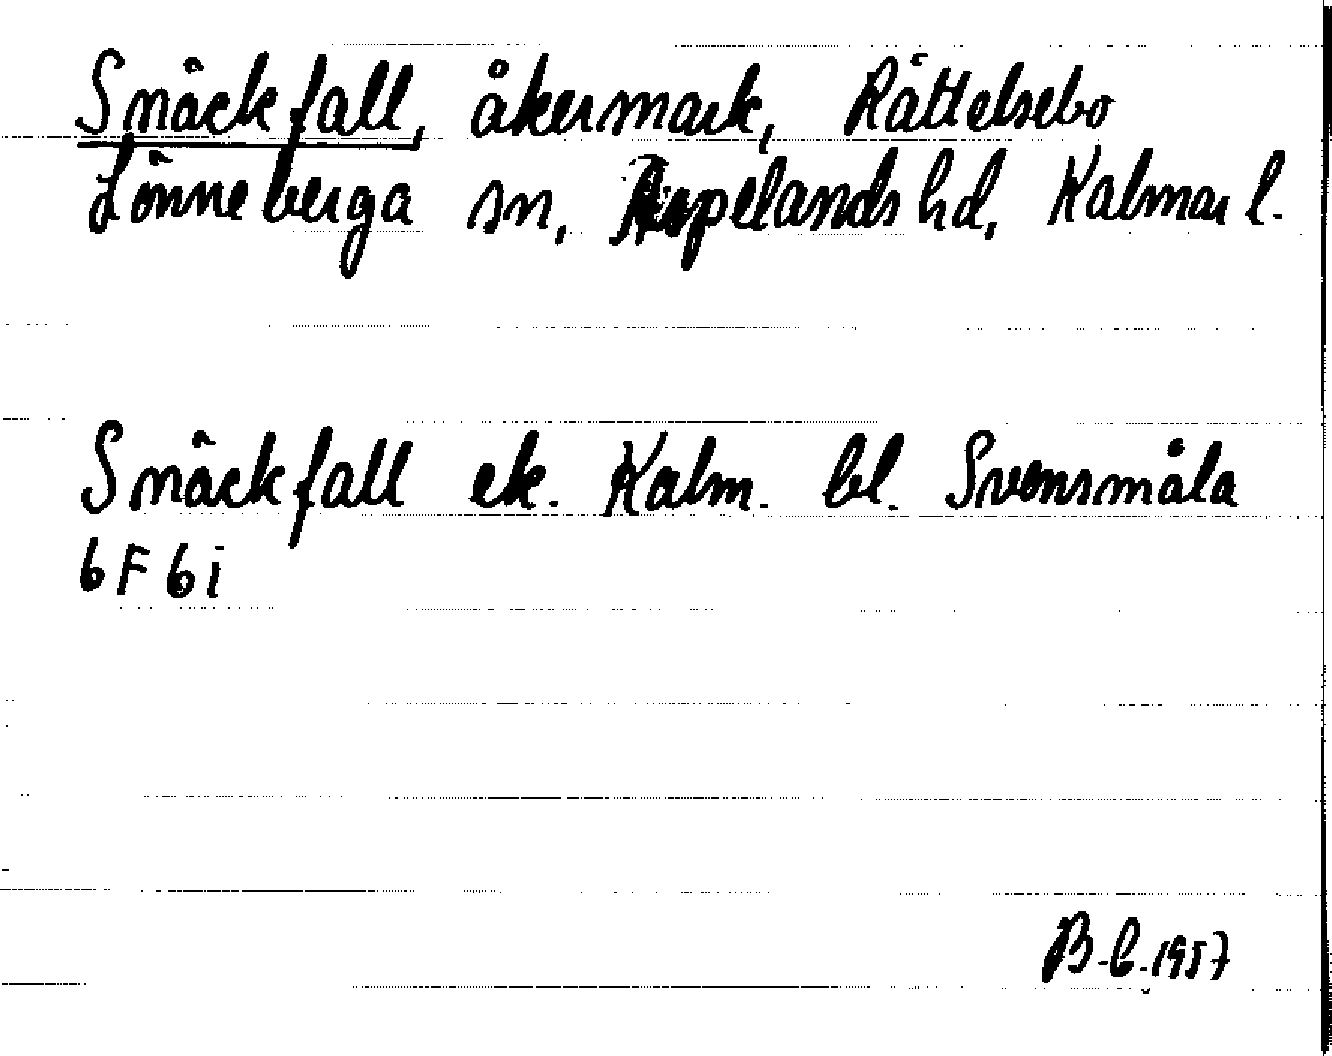 Snäckfall, åkermark, Rättelsebo
Lönneberga sn, Aspelands hd, Kalmar l.
Snäckfall ek. Kalm. bl. Svensmåla
6 F 6 i
B-b. 1957